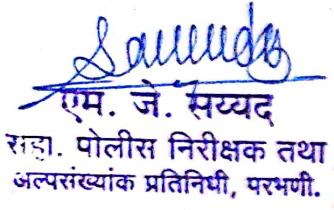 एम. जे. सय्यद
सहा. पोलीस निरीक्षक तथा
अल्पसंख्यांक प्रतिनिधी, परभणी.